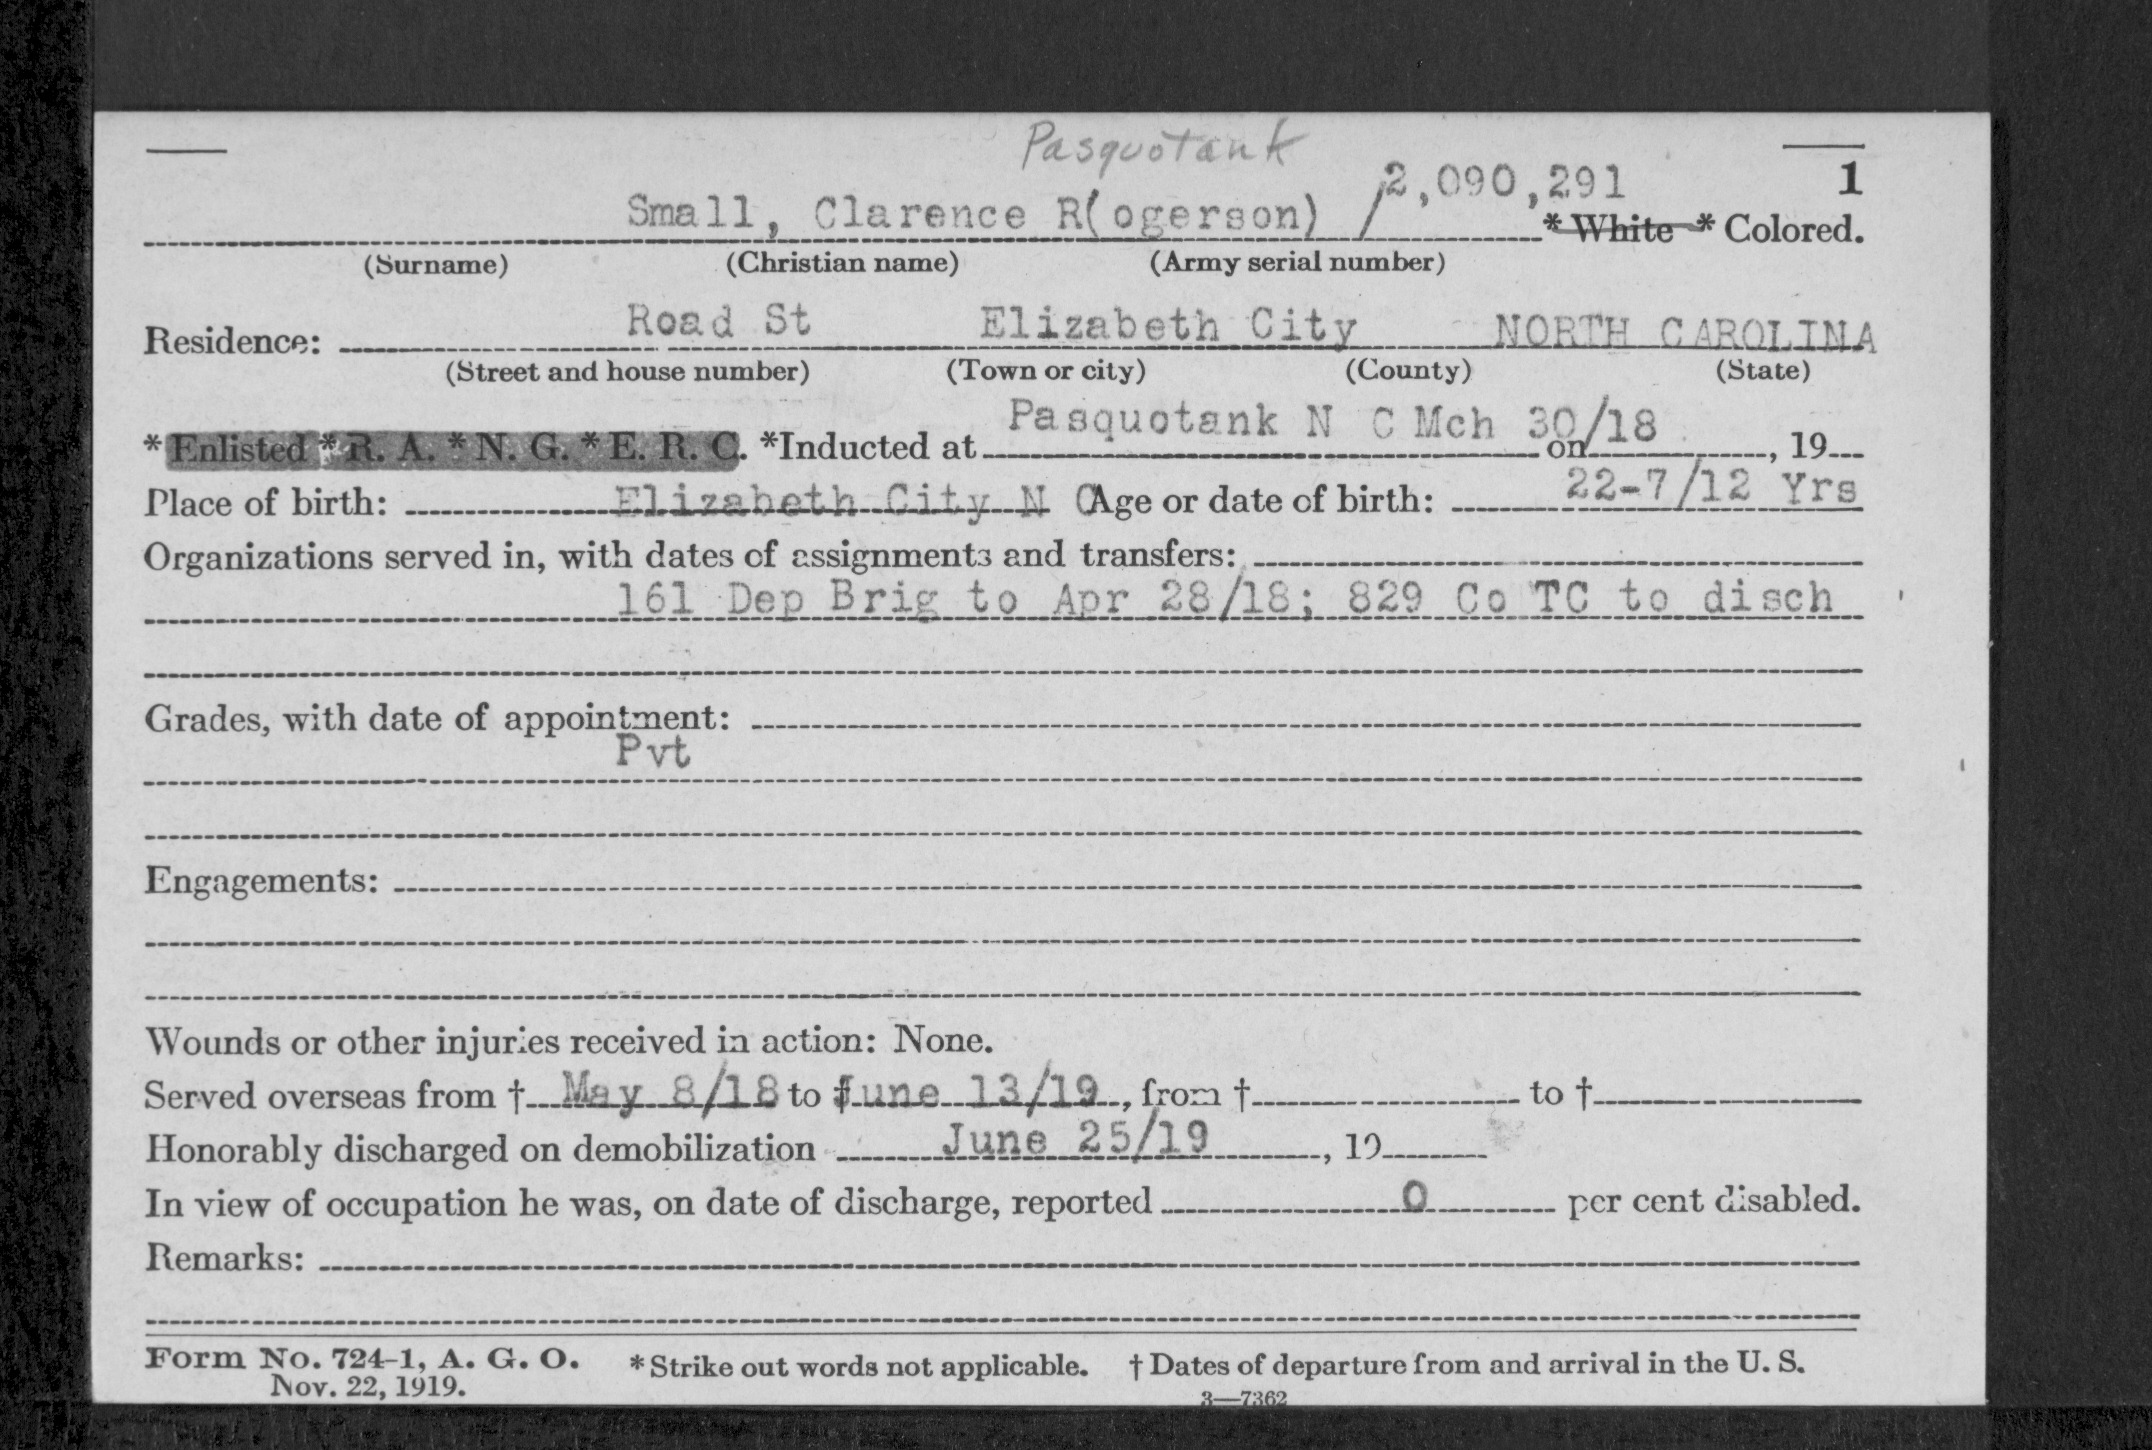 Pasquotank
Small, Clarence R(ogerson) / 2,090,291 1
* White * Colored.
(Surname) (Christian name) (Army serial number)
Residence: Road St Elizabeth City NORTH CAROLINA
(Street and house number) (Town or city) (County) (State)
* Enlisted * R. A. * N. G. * E. R. C. *Inducted at Pasquotank N C Mch 30/18 on , 19
Place of birth: Elizabeth City N C Age or date of birth: 22-7/12 Yrs
Organizations served in, with dates of assignments and transfers:
161 Dep Brig to Apr 28/18; 829 Co TC to disch
Grades, with date of appointment:
Pvt
Engagements:
Wounds or other injuries received in action: None.
Served overseas from † May 8/18 to † June 13/19, from † to †
Honorably discharged on demobilization June 25/19, 19
In view of occupation he was, on date of discharge, reported 0 per cent disabled.
Remarks:
Form No. 724-1, A. G. O. * Strike out words not applicable. † Dates of departure from and arrival in the U. S.
Nov. 22, 1919.
3—7362